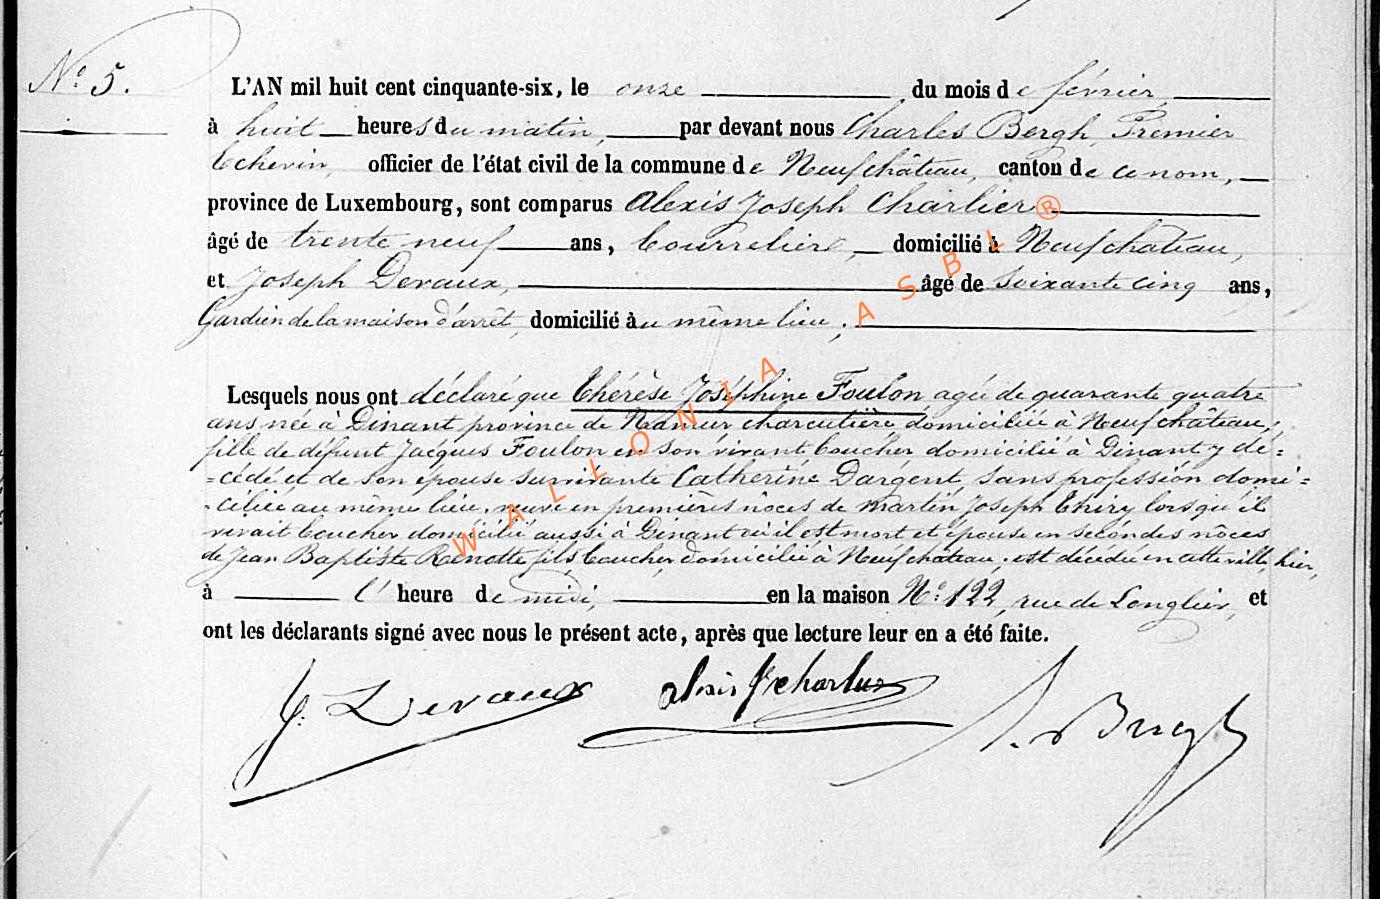 N° 5.
L'AN mil huit cent cinquante-six, le onze du mois de février
à huit heures du matin, par devant nous Charles Bergh, Premier
Echevin, officier de l'état civil de la commune de Neufchâteau, canton de ce nom,
province de Luxembourg, sont comparus Alexis Joseph Charlier
âgé de trente neuf ans, Bourrelier, domicilié à Neufchateau,
et Joseph Devaux, âgé de soixante cinq ans,
Gardien de la maison d'arrêt, domicilié au même lieu ;
Lesquels nous ont déclaré que Thérèse Joséphine Foulon, agée de quarante quatre
ans née à Dinant province de Namur charcutière domiciliée à Neufchâteau,
fille de défunt Jacques Foulon en son vivant boucher domicilié à Dinant y dé=
=cédé et de son épouse survivante Catherine Dargent, sans profession domi=
=ciliée au même lieu, veuve en premières nôces de Martin Joseph Thiry lorsqu'il
vivait boucher domicilié aussi à Dinant où il est mort et épouse en secondes nôces
de Jean Baptiste Renotte fils boucher, domicilié à Neufchateau, est décédée en cette ville, hier,
à l' heure de midi, en la maison N° 122, rue de Longlier, et
ont les déclarants signé avec nous le présent acte, après que lecture leur en a été faite.
J. Devaux Alexis J charlier Bergh
WALLONIA ASBL ®